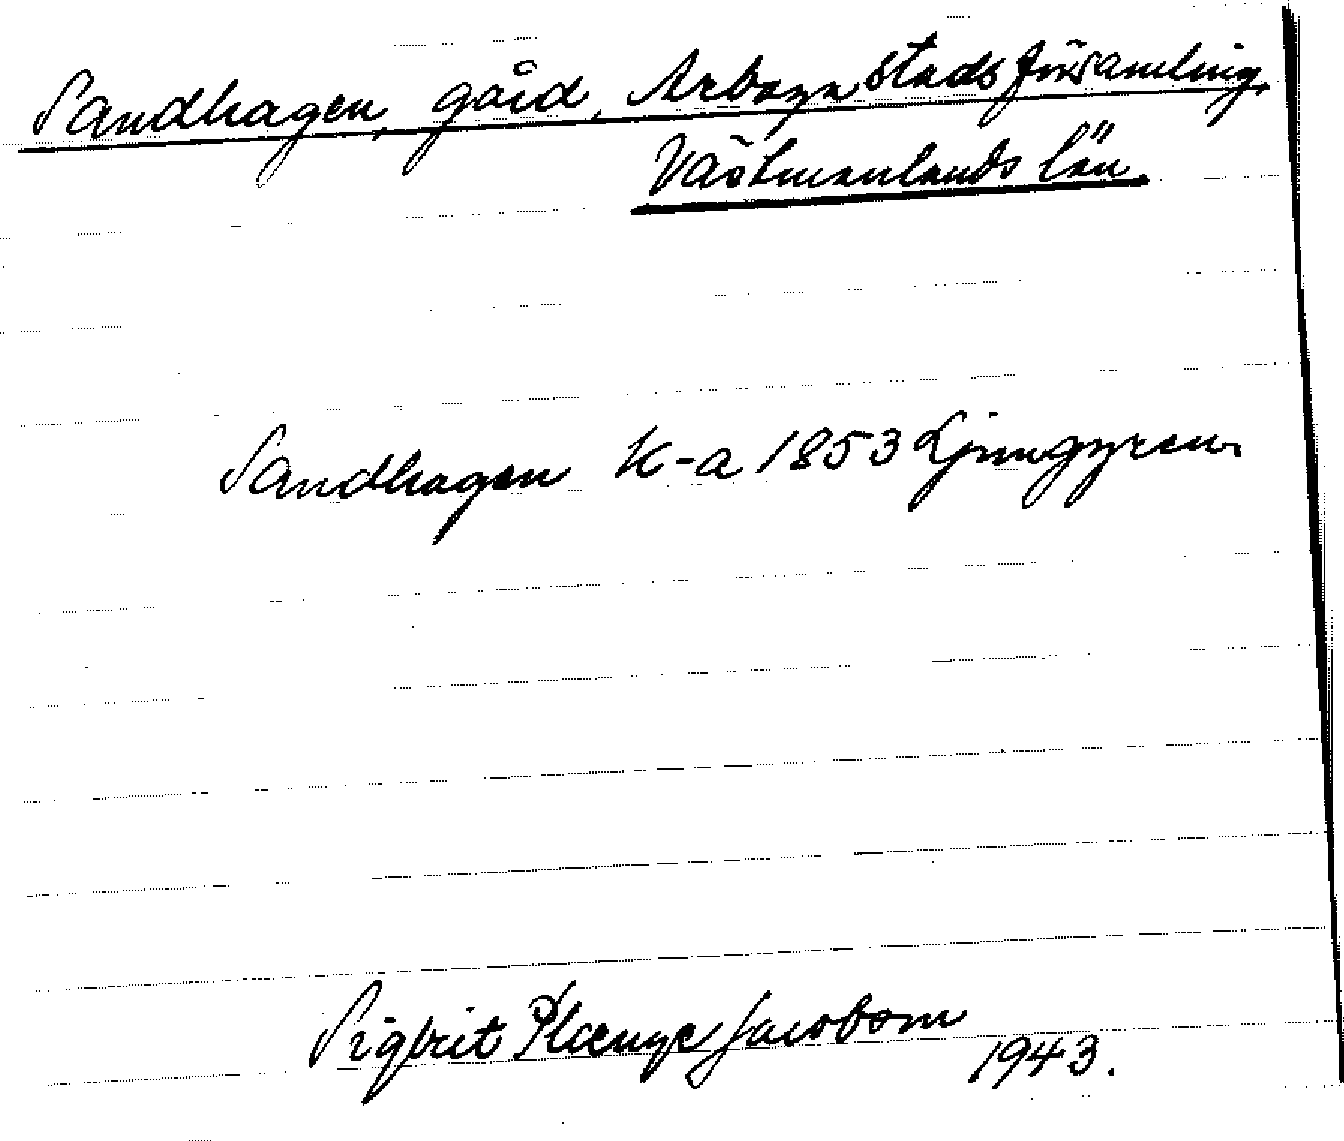 Sandhagen, gård, Arboga stadsförsamling,
Västmanlands län.
Sandhagen K-a 1853 Ljunggren
Sigbrit Plænge Jacobson
1943.